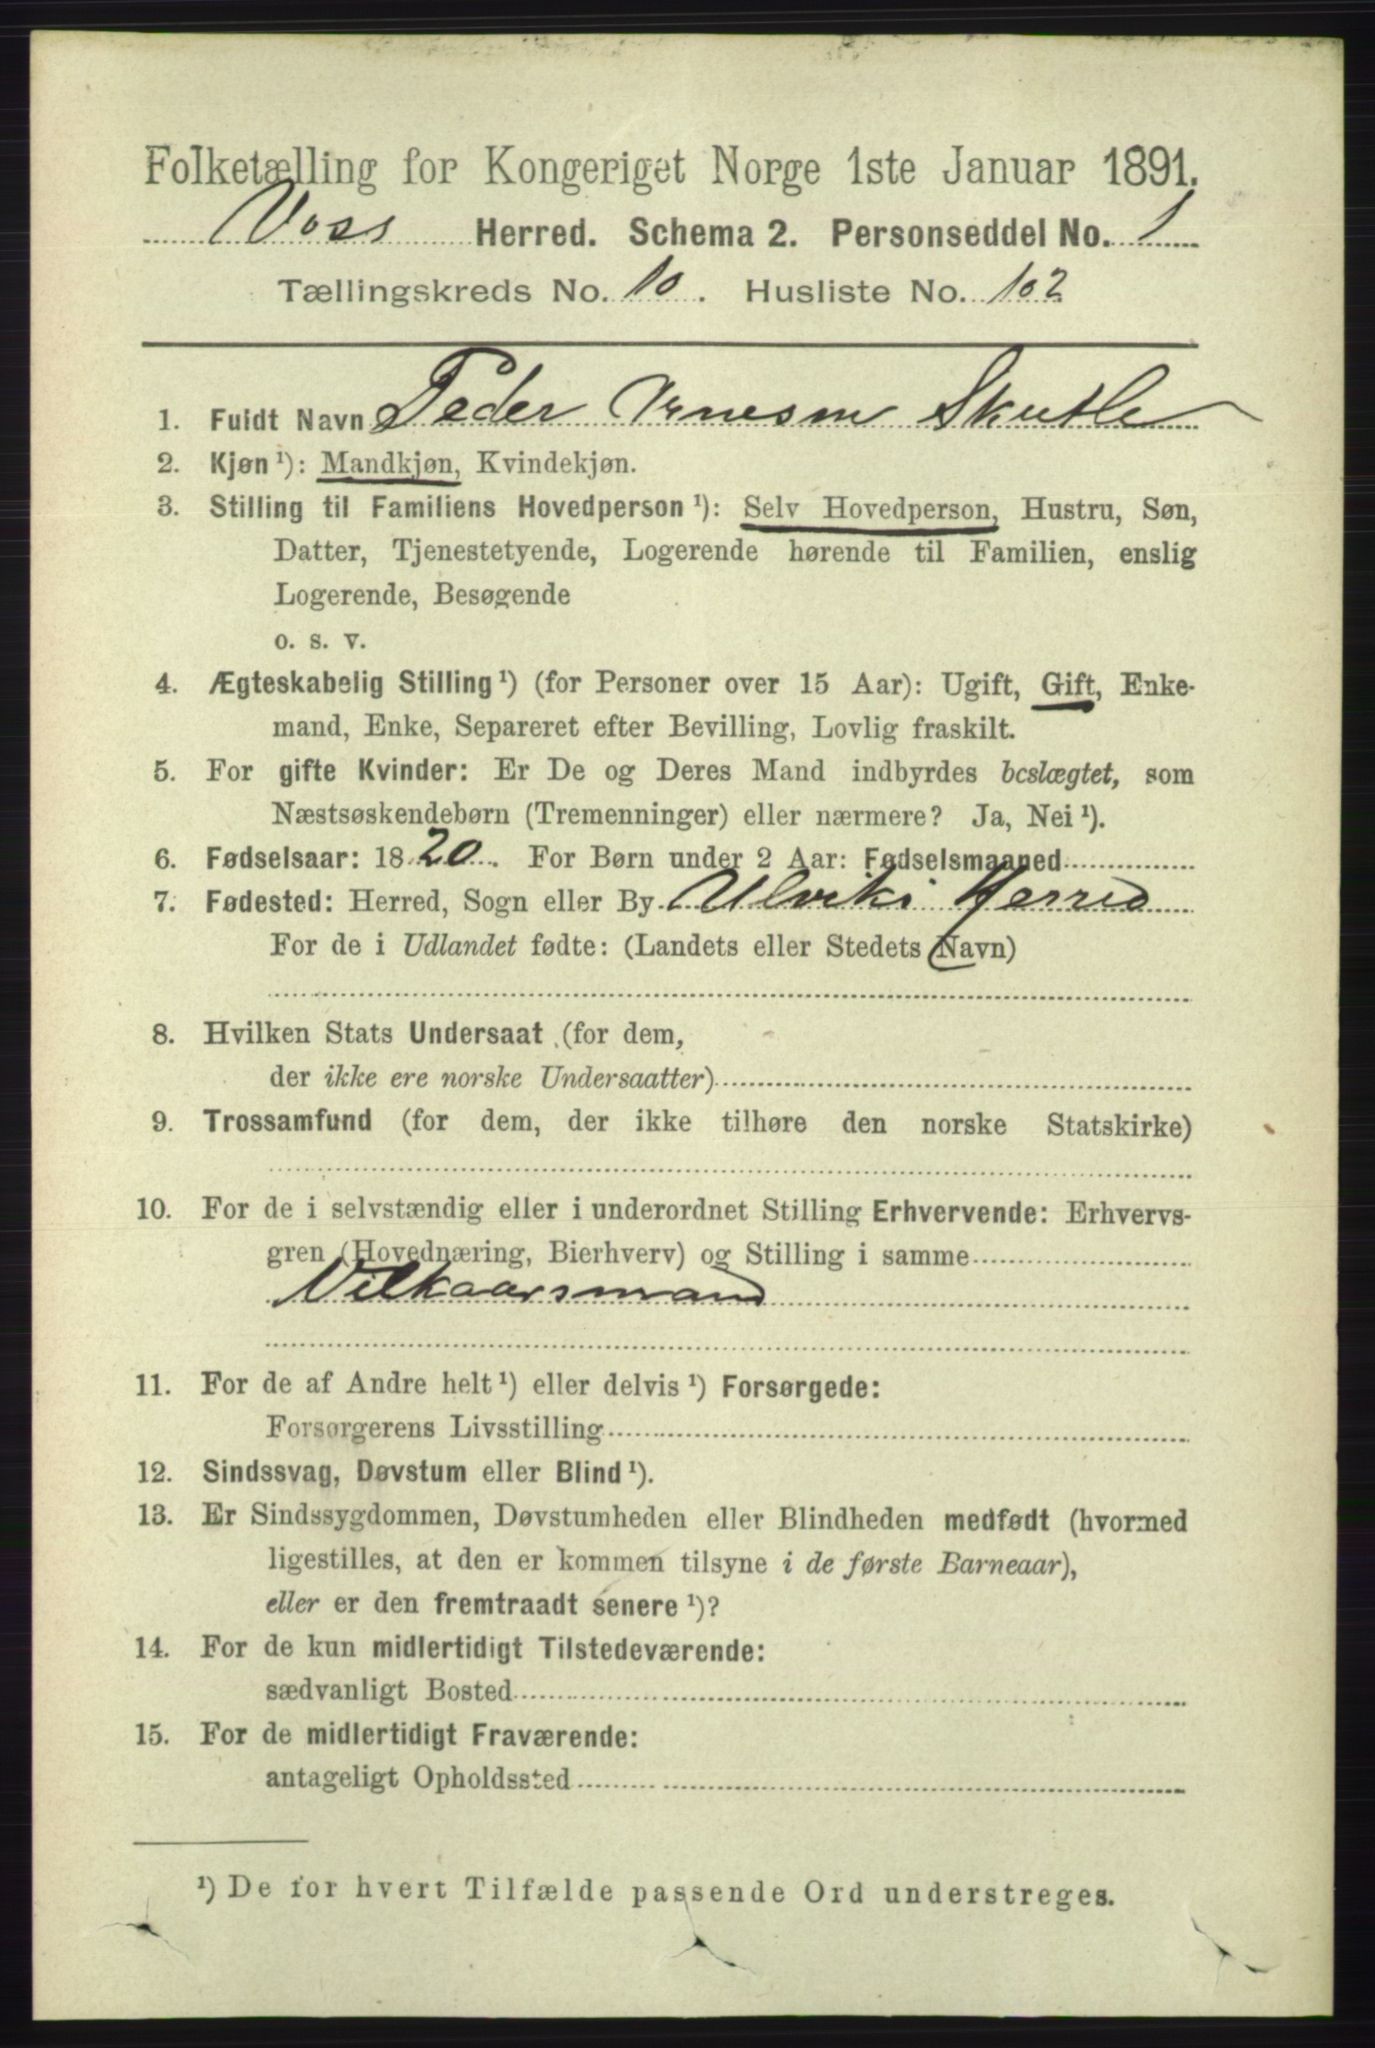 Folketælling for Kongeriget Norge 1ste Januar 1891.
Voss Herred. Schema 2. Personseddel No. 1
Tællingskreds No. 10. Husliste No. 102
1. Fuldt Navn Peder Arnesen Skutle
2. Kjøn ¹): Mandkjøn, Kvindekjøn.
3. Stilling til Familiens Hovedperson ¹): Selv Hovedperson, Hustru, Søn,
Datter, Tjenestetyende, Logerende hørende til Familien, enslig
Logerende, Besøgende
o. s. v.
4. Ægteskabelig Stilling ¹) (for Personer over 15 Aar): Ugift, Gift, Enke-
mand, Enke, Separeret efter Bevilling, Lovlig fraskilt.
5. For gifte Kvinder: Er De og Deres Mand indbyrdes beslægtet, som
Næstsøskendebørn (Tremenninger) eller nærmere? Ja, Nei ¹).
6. Fødselsaar: 1820. For Børn under 2 Aar: Fødselsmaaned
7. Fødested: Herred, Sogn eller By Ulviks Herred
For de i Udlandet fødte: (Landets eller Stedets Navn)
8. Hvilken Stats Undersaat (for dem,
der ikke ere norske Undersaatter)
9. Trossamfund (for dem, der ikke tilhøre den norske Statskirke)
10. For de i selvstændig eller i underordnet Stilling Erhvervende: Erhvervs-
gren (Hovednæring, Bierhverv) og Stilling i samme
Vilkaarsmand
11. For de af Andre helt ¹) eller delvis ¹) Forsørgede:
Forsørgerens Livsstilling
12. Sindssvag, Døvstum eller Blind ¹).
13. Er Sindssygdommen, Døvstumheden eller Blindheden medfødt (hvormed
ligestilles, at den er kommen tilsyne i de første Barneaar),
eller er den fremtraadt senere ¹)?
14. For de kun midlertidigt Tilstedeværende:
sædvanligt Bosted
15. For de midlertidigt Fraværende:
antageligt Opholdssted
¹) De for hvert Tilfælde passende Ord understreges.